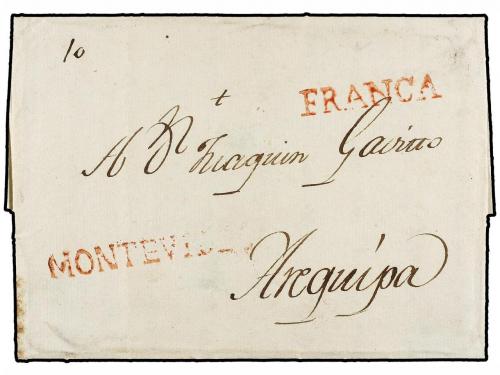 10
FRANCA
+
A Dn Juaquin Gavitto
MONTEVIDEO
Arequipa